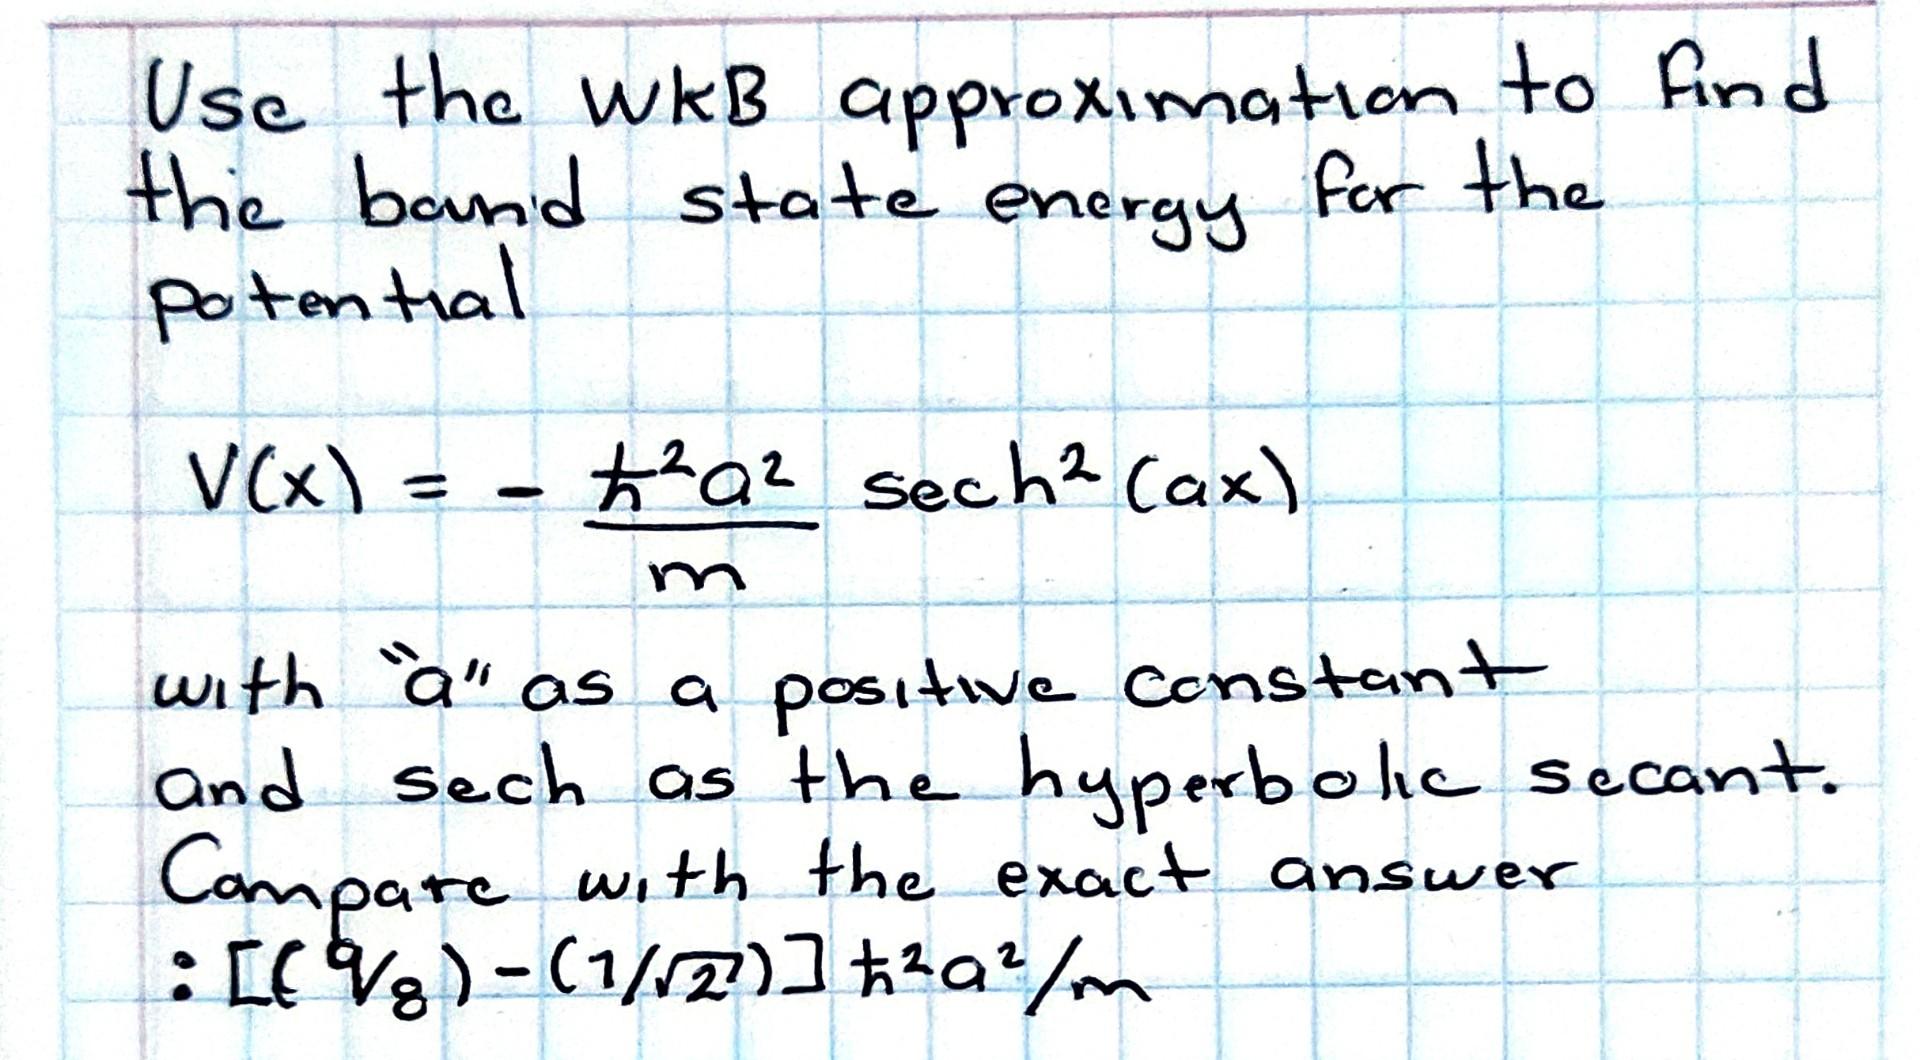 Use the WKB approximation to find
the bound state energy for the
potential
V(x) = - ħ²a²/m sech² (ax)
with "a" as a positive constant
and sech as the hyperbolic secant.
Compare with the exact answer
: [(9/8) - (1/√2)] ħ²a²/m